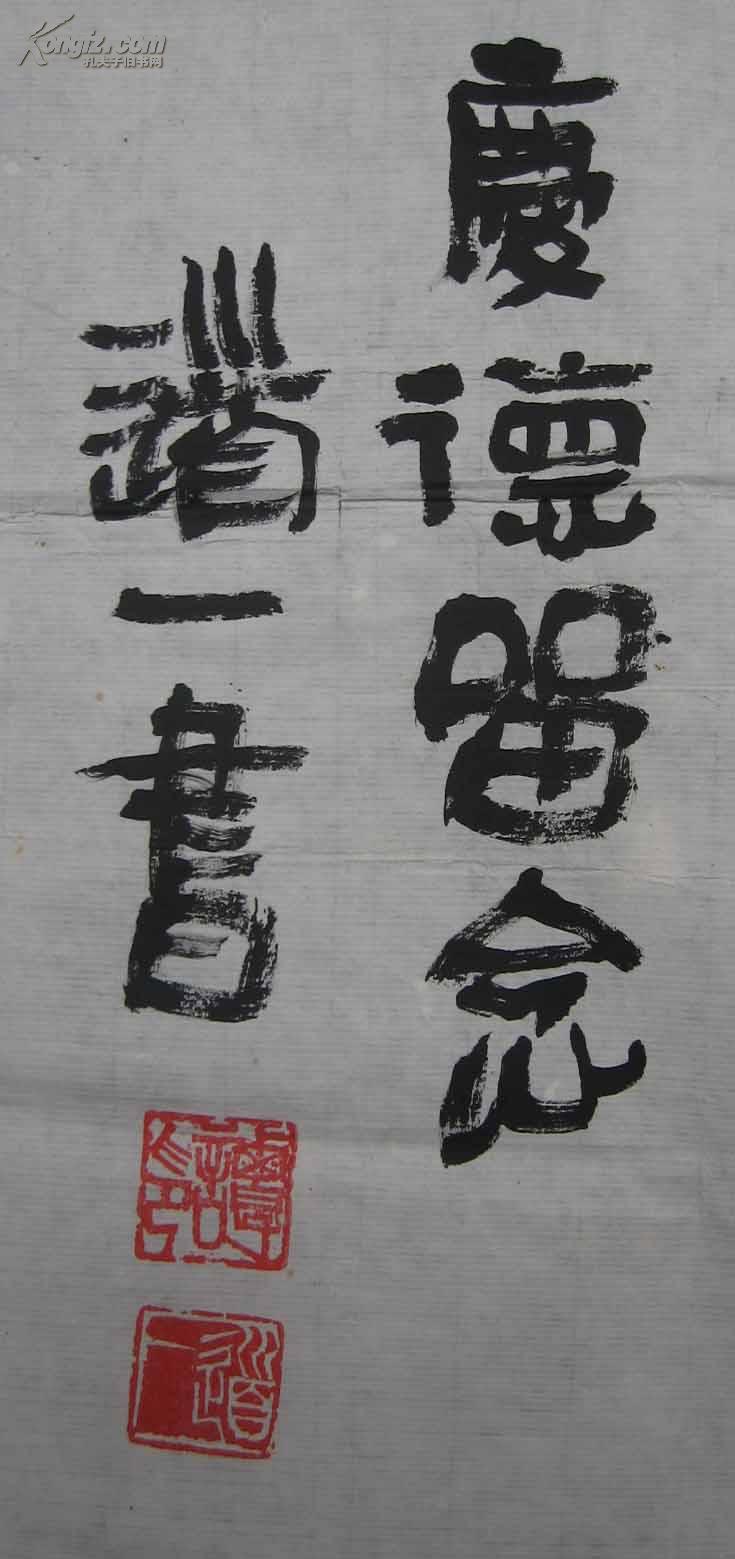 慶德留念
道一書
道一
Kongfz.com
孔夫子旧书网